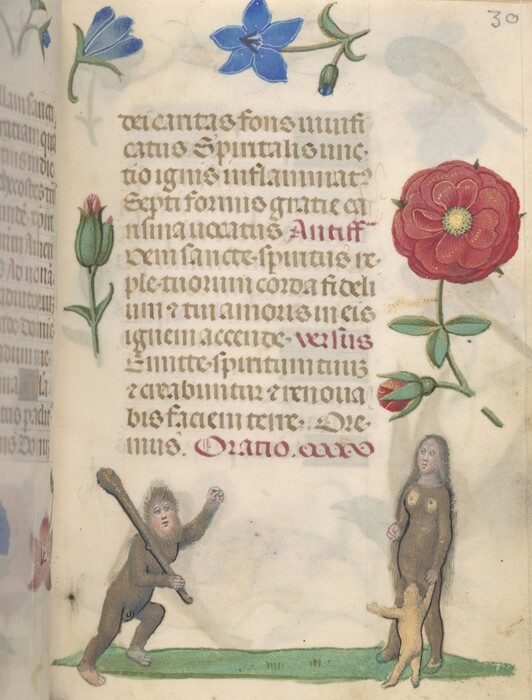 30
dei caritas fons uiuifi
catus Spiritalis unc-
tio ignis inflammatꝰ
Septi formis gratie ca
risma uocatus Antiff
Veni sancte spiritus re-
ple tuorum corda fideli
um ⁊ tui amoris in eis
ignem accende. versus
Emitte spiritum tuuz
⁊ creabuntur ⁊ renoua
bis faciem terre. Ore-
mus. Oratio.